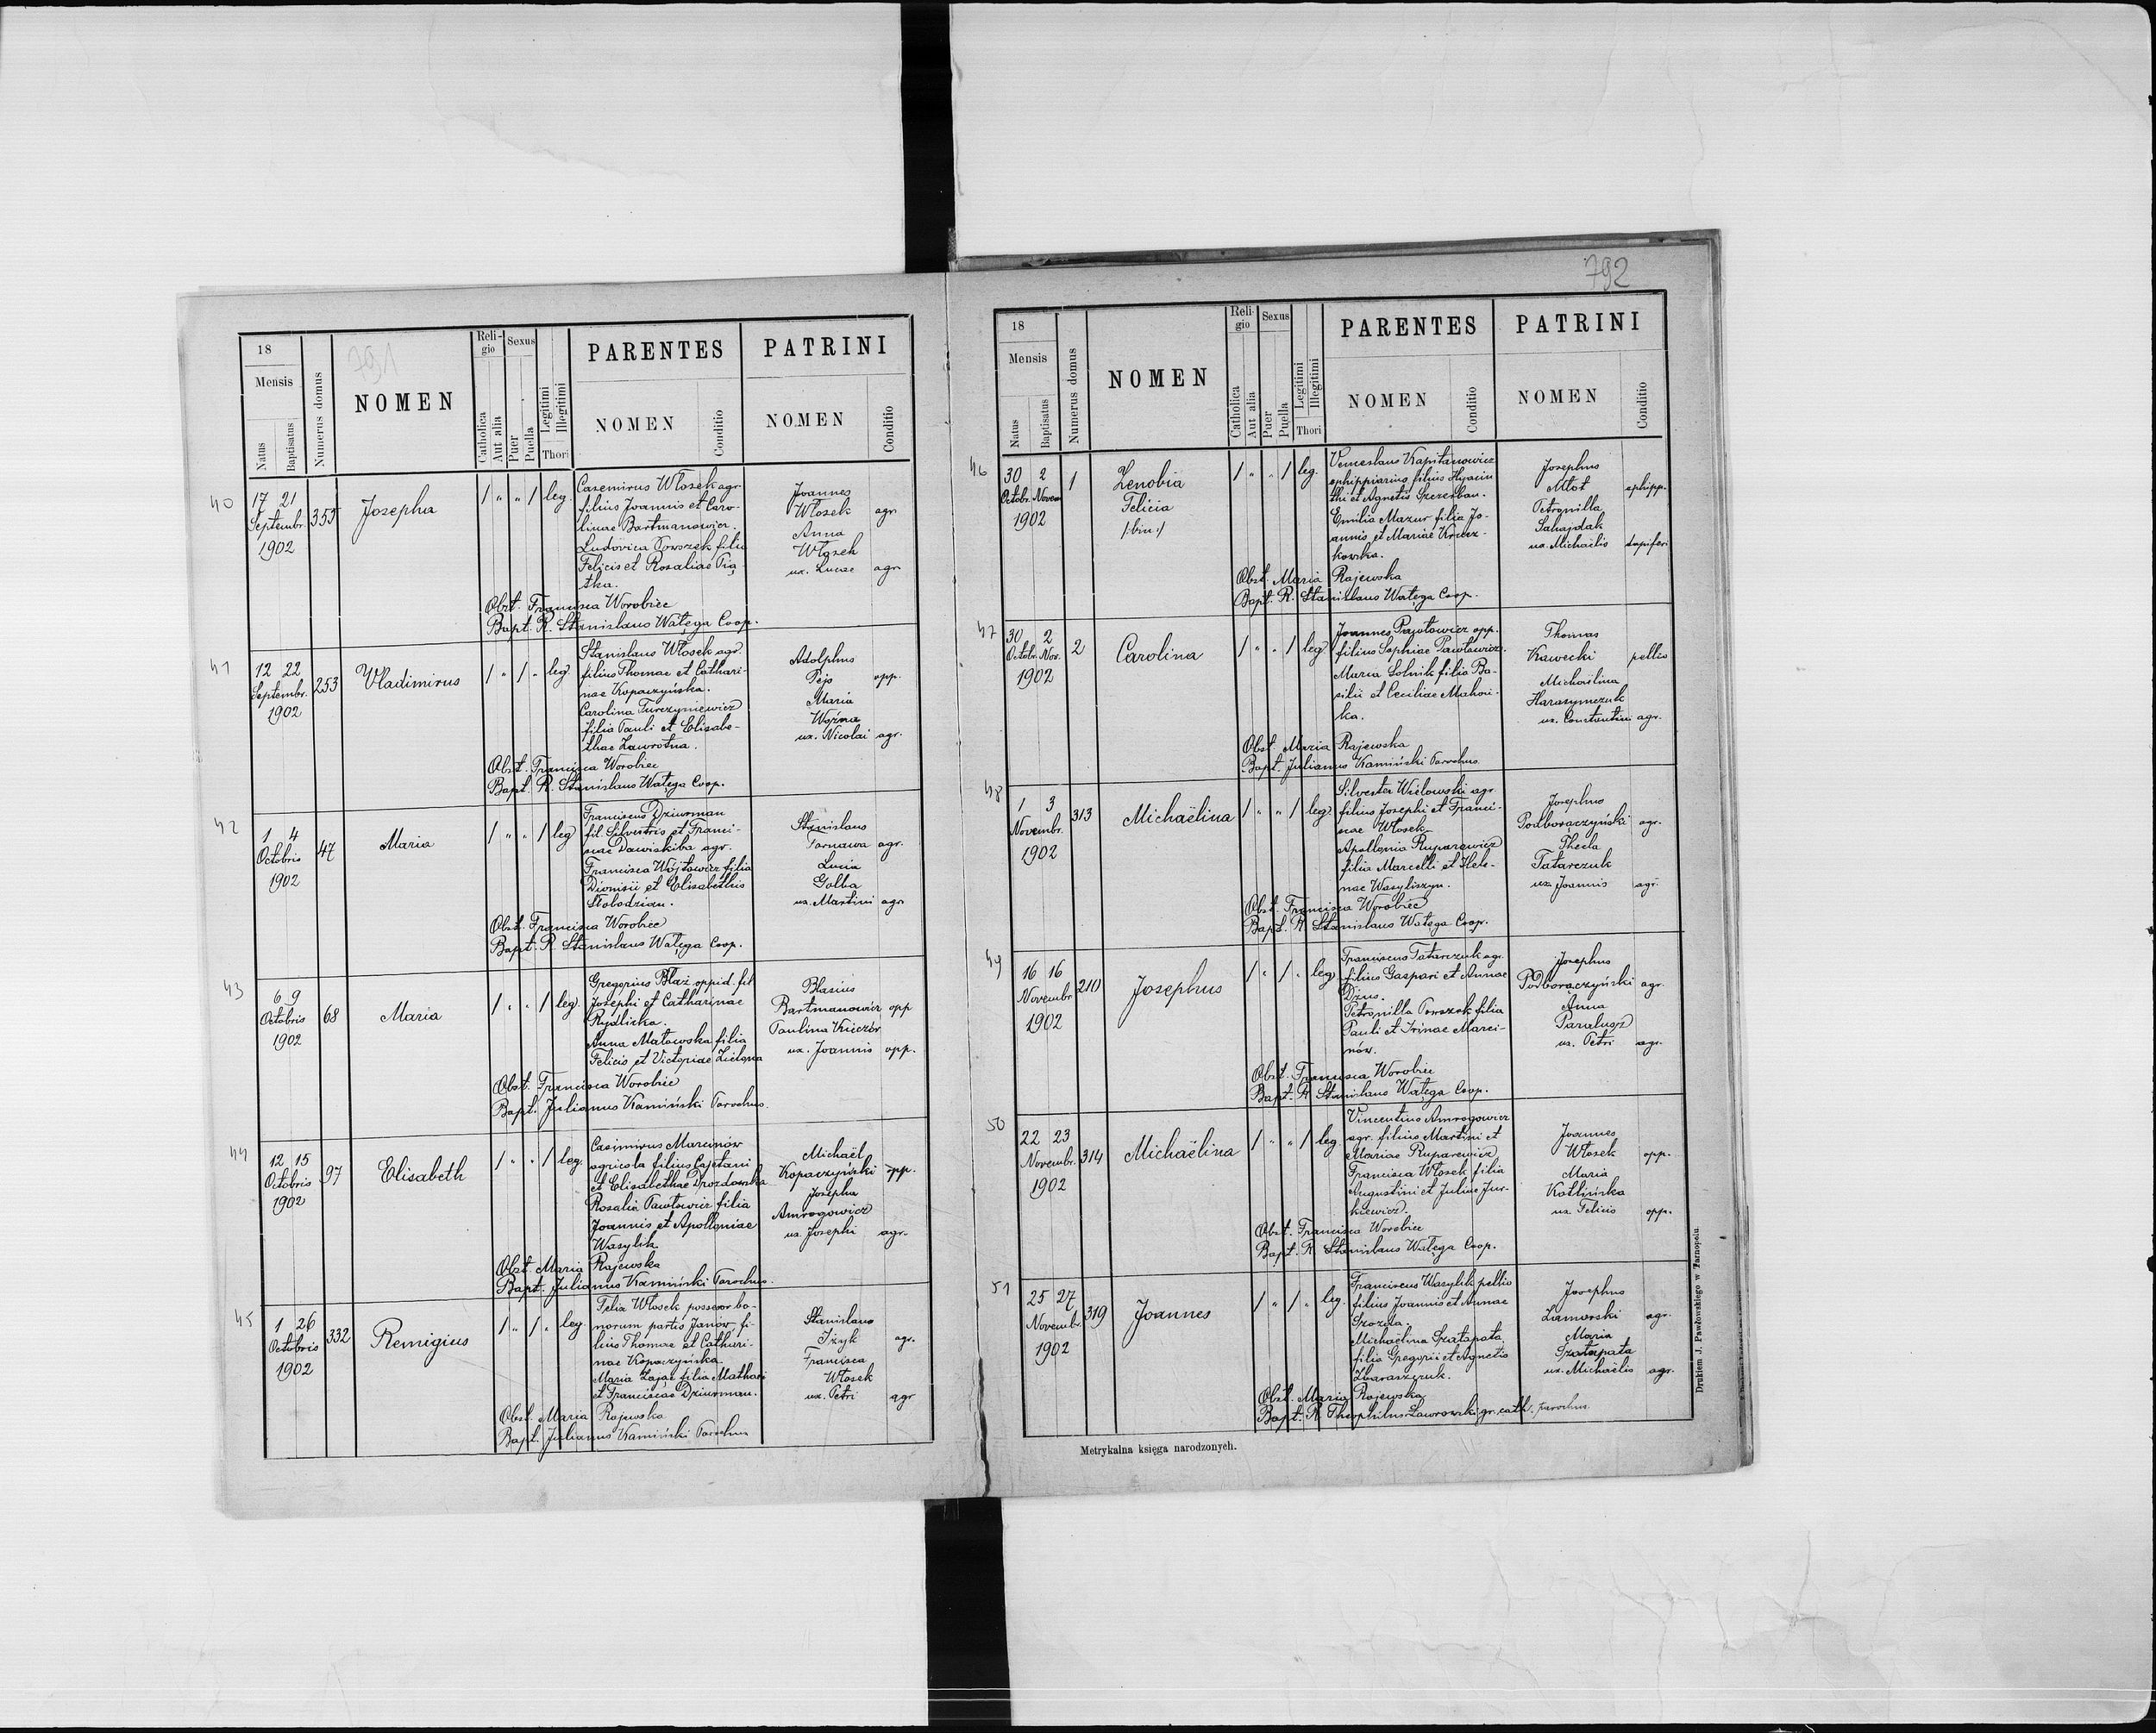 791
18
Mensis
Natus
Baptisatus
Numerus domus
NOMEN
Reli-
gio
Catholica
Aut alia
Sexus
Puer
Puella
Legitimi
Illegitimi
Thori
PARENTES
NOMEN
Conditio
PATRINI
NOMEN
Conditio
40
17 21
Septembr.
1902
355
Josepha
1 " " 1 leg.
Casemirus Włosek agr.
filius Joannis et Caro-
linae Bartmanowicz.
Ludovica Sowszek filia
Felicis et Rosaliae Pią-
tka.
Joannes
Włosek agr.
Anna
Włosek
ux. Lucae agr.
Obst. Francisca Worobiec
Bapt. R. Stanislaus Wałęga Coop.
41
12 22
Septembr.
1902
253
Vladimirus
1 " 1 " leg.
Stanislaus Włosek agr.
filius Thomae et Cathari-
nae Kopaczyńska.
Carolina Turczyniewicz
filia Pauli et Elisabe-
thae Zawrotna.
Adolphus
Pejo opp.
Maria
Woźna
ux. Nicolai agr.
Obst. Francisca Worobiec
Bapt. R. Stanislaus Wałęga Coop.
42
1 4
Octobris
1902
47
Maria
1 " " 1 leg.
Franciscus Dziurman
fil. Silvestris et Franci-
scae Dawiskiba agr.
Francisca Wójtowicz filia
Dionisii et Elisabethis
Słobodzian.
Stanislaus
Tarnawa agr.
Lucia
Golba
ux. Martini agr.
Obst. Francisca Worobiec
Bapt. R. Stanislaus Wałęga Coop.
43
6 9
Octobris
1902
68
Maria
1 " " 1 leg.
Gregorius Błaż oppid. fil.
Josephi et Catharinae
Rydlicka.
Anna Małowska filia
Felicis et Victoriae Zielona
Blasius
Bartmanowicz opp.
Paulina Kieczór
ux. Joannis opp.
Obst. Francisca Worobiec
Bapt. Julianus Kamiński Parochus.
44
12 15
Octobris
1902
97
Elisabeth
1 " " 1 leg.
Casimirus Marcinów
agricola filius Cajetani
et Elisabethae Drozdowska
Rosalia Pawłowicz filia
Joannis et Apolloniae
Wasylik.
Michaël
Kopaczyński opp.
Josepha
Amrogowicz
ux. Josephi agr.
Obst. Maria Rajewska
Bapt. Julianus Kamiński Parochus.
45
1 26
Octobris
1902
332
Remigius
1 " 1 " leg.
Felix Włosek possesor bo-
norum partis Janów, fi-
lius Thomae et Cathari-
nae Kopaczyńska.
Maria Zając filia Mathaei
et Franciscae Dziurman.
Stanislaus
Iżyk agr.
Francisca
Włosek
ux. Petri agr.
Obst. Maria Rajewska
Bapt. Julianus Kamiński Parochus
792
18
Mensis
Natus
Baptisatus
Numerus domus
NOMEN
Reli-
gio
Catholica
Aut alia
Sexus
Puer
Puella
Legitimi
Illegitimi
Thori
PARENTES
NOMEN
Conditio
PATRINI
NOMEN
Conditio
46
30 2
Octobr. Novem.
1902
1
Zenobia
Felicia
/:bin:/
1 " " 1 leg.
Venceslaus Kapitanowicz
ephippiarius, filius Hyacin-
thi et Agnetis Szczerban.
Emilia Mazur filia Jo-
annis et Mariae Krucz-
kowska.
Josephus
Młot ephipp.
Petronilla
Sahajdak
ux. Michaëlis
Obst. Maria Rajewska
Bapt. R. Stanislaus Wałęga Coop.
47
30 2
Octobr. Nov.
1902
2
Carolina
1 " " 1 leg.
Joannes Pawłowicz opp.
filius Sophiae Pawłowicz.
Maria Solnik filia Ba-
silii et Ceciliae Mahow-
ka.
Thomas
Kawecki pellio
Michaëlina
Harasymczuk
ux. Constantini agr.
Obst. Maria Rajewska
Bapt. Julianus Kamiński Parochus.
48
1 3
Novembr.
1902
313
Michaëlina
1 " " 1 leg.
Silvester Wielowski agr.
filius Josephi et Franci-
scae Włosek.
Apollonia Ruparewicz
filia Marcelli et Hele-
nae Wasyliszyn.
Josephus
Podborączyński agr.
Thecla
Tatarczuk
ux. Joannis agr.
Obst. Francisca Worobiec
Bapt. R. Stanislaus Wałęga Coop.
49
16 16
Novembr.
1902
210
Josephus
1 " 1 " leg.
Franciscus Tatarczuk agr.
filius Gaspari et Annae
Dżus.
Petronilla Sowszek filia
Pauli et Irinae Marci-
nów.
Josephus
Podborączyński agr.
Anna
Paralusz
ux. Petri agr.
Obst. Francisca Worobiec
Bapt. R. Stanislaus Wałęga Coop.
50
22 23
Novembr.
1902
314
Michaëlina
1 " " 1 leg.
Vincentius Amrogowicz
agr. filius Martini et
Mariae Ruparewicz
Francisca Włosek filia
Augustini et Juliae Jur-
kiewicz.
Joannes
Włosek opp.
Maria
Kotlińska
ux. Felicis opp.
Obst. Francisca Worobiec
Bapt. R. Stanislaus Wałęga Coop.
51
25 27
Novembr.
1902
319
Joannes
1 " 1 " leg.
Franciscus Wasylik pellio
filius Joannis et Annae
Szozda.
Michaëlina Szałapata
filia Gregorii et Agnetis
Zbaraszczuk.
Josephus
Lamorski agr.
Maria
Szałapata
ux. Michaëlis agr.
Obst. Maria Rajewska
Bapt. R. Theophilus Ławrowski gr. cath. parochus.
Metrykalna księga narodzonych.
Drukiem J. Pawłowskiego w Tarnopolu.